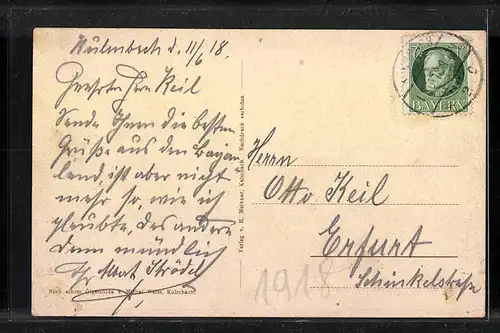 Kulmbach d. 11/6 18.
Geehrter Herr Keil
Sende Ihnen die besten
Grüße aus den Bayern
land, ist aber nicht
mehr so, wie ich
glaubte, das andere
dann mündlich
Albert Strödel
Nach einem Ölgemälde v. Michel Weiß, Kulmbach
Verlag v. H. Metzner, Kulmbach. Nachdruck verboten
BAYERN
Herrn
Otto Keil
Erfurt
Schinkelstraße
1918